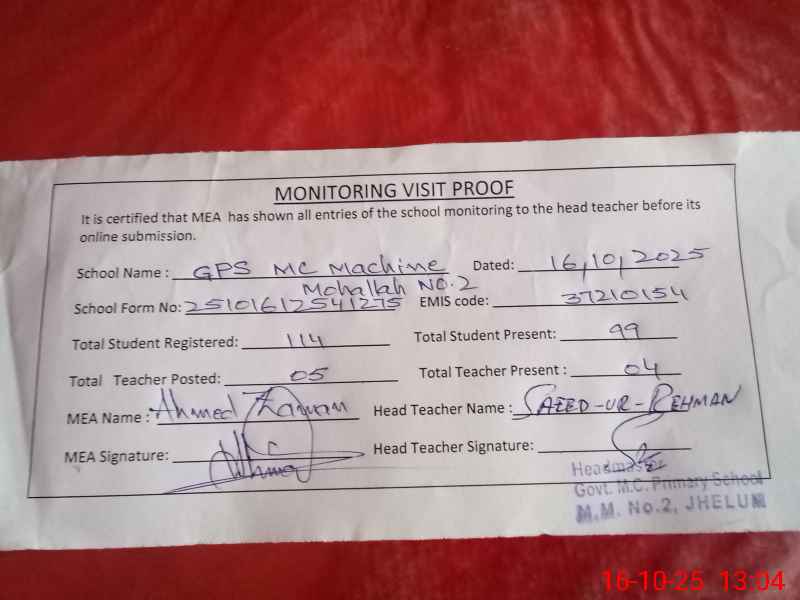 MONITORING VISIT PROOF
It is certified that MEA has shown all entries of the school monitoring to the head teacher before its
online submission.
School Name : GPS MC Machine Dated: 16,10,2025
Mohallah NO.2
School Form No: 25101612541275 EMIS code: 37210154
Total Student Registered: 114 Total Student Present: 99
Total Teacher Posted: 05 Total Teacher Present : 04
MEA Name : Ahmed Zaman Head Teacher Name : SAEED-UR-REHMAN
MEA Signature: Head Teacher Signature:
Headmaster
Govt. M.C. Primary School
M.M. No.2, JHELUM
16-10-25 13:04